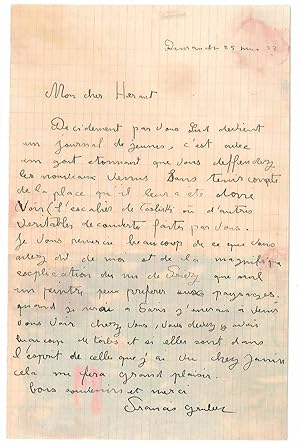 Dimanche 25 mars 33
Mon cher Heraut
Decidement par vous Sud devient
un journal de jeunes, c'est avec
un gout etonnant que vous deffendez
les nouveaux venus sans tenir compte
de la place qu'il leur a ete donne
Voir (l'escalier de ou d'autres
veritables decouverte faites par vous.
Je vous remercie beaucoup de ce que vous
avez dit de moi et de la magnifique
explication du nu de que seul
un peintre peu preferer aux paysages.
quand je irai a Paris j'aurais a venir
vous voir chez vous, vous devez avoir
beaucoup de toiles et si elles sont dans
l'esprit de celle que j'ai vu chez Janin
cela me fera grand plaisir.
Bons souvenirs et merci
Francis Gruber